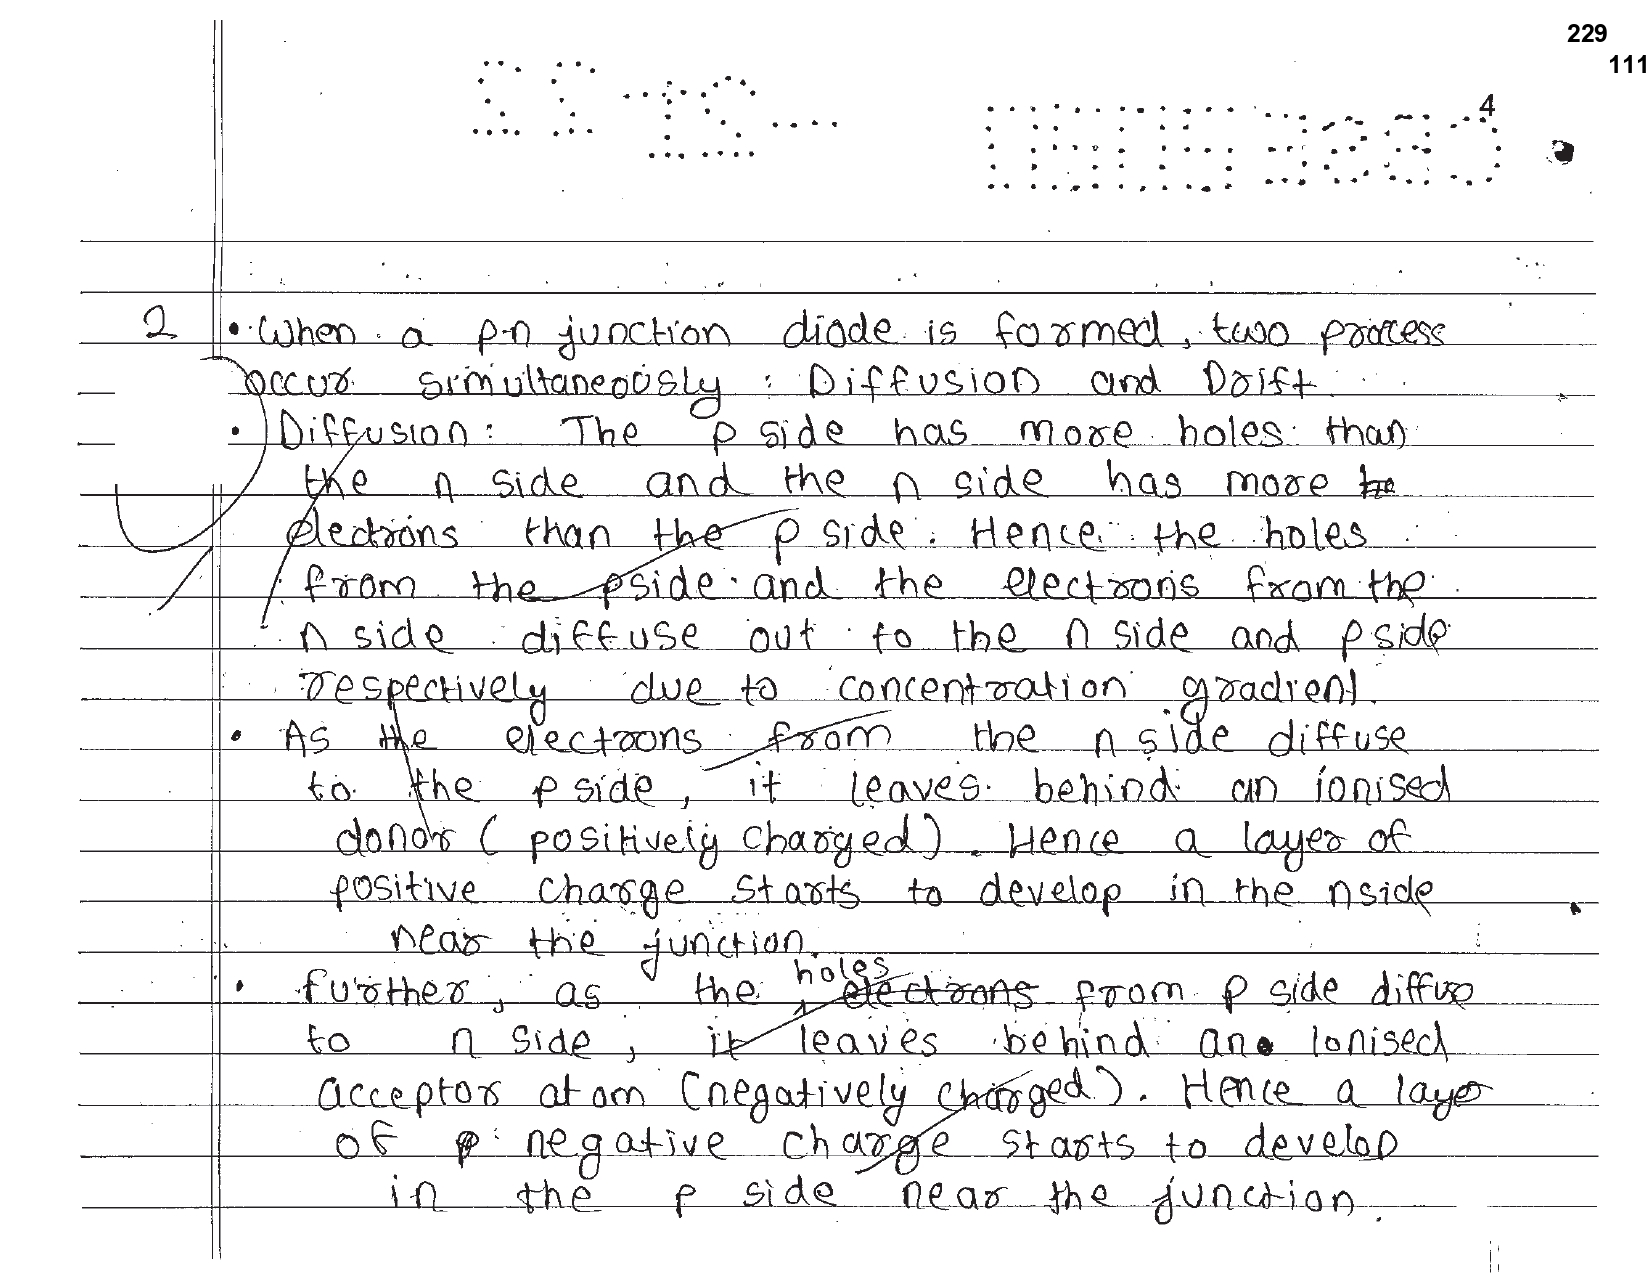 229
111
4
2 • When a p-n junction diode is formed, two process
occur simultaneously : Diffusion and Drift
• Diffusion : The p side has more holes than
the n side and the n side has more
electrons than the p side. Hence the holes
from the pside and the electrons from the
n side diffuse out to the n side and p side
respectively due to concentration gradient.
• As the electrons from the n side diffuse
to the p side, it leaves behind an ionised
donor (positively charged). Hence a layer of
positive charge starts to develop in the nside
near the junction.
holes
• further, as the electrons from p side diffuse
to n side, it leaves behind an Ionised
acceptor atom (negatively charged). Hence a layer
of p negative charge starts to develop
in the p side near the junction.